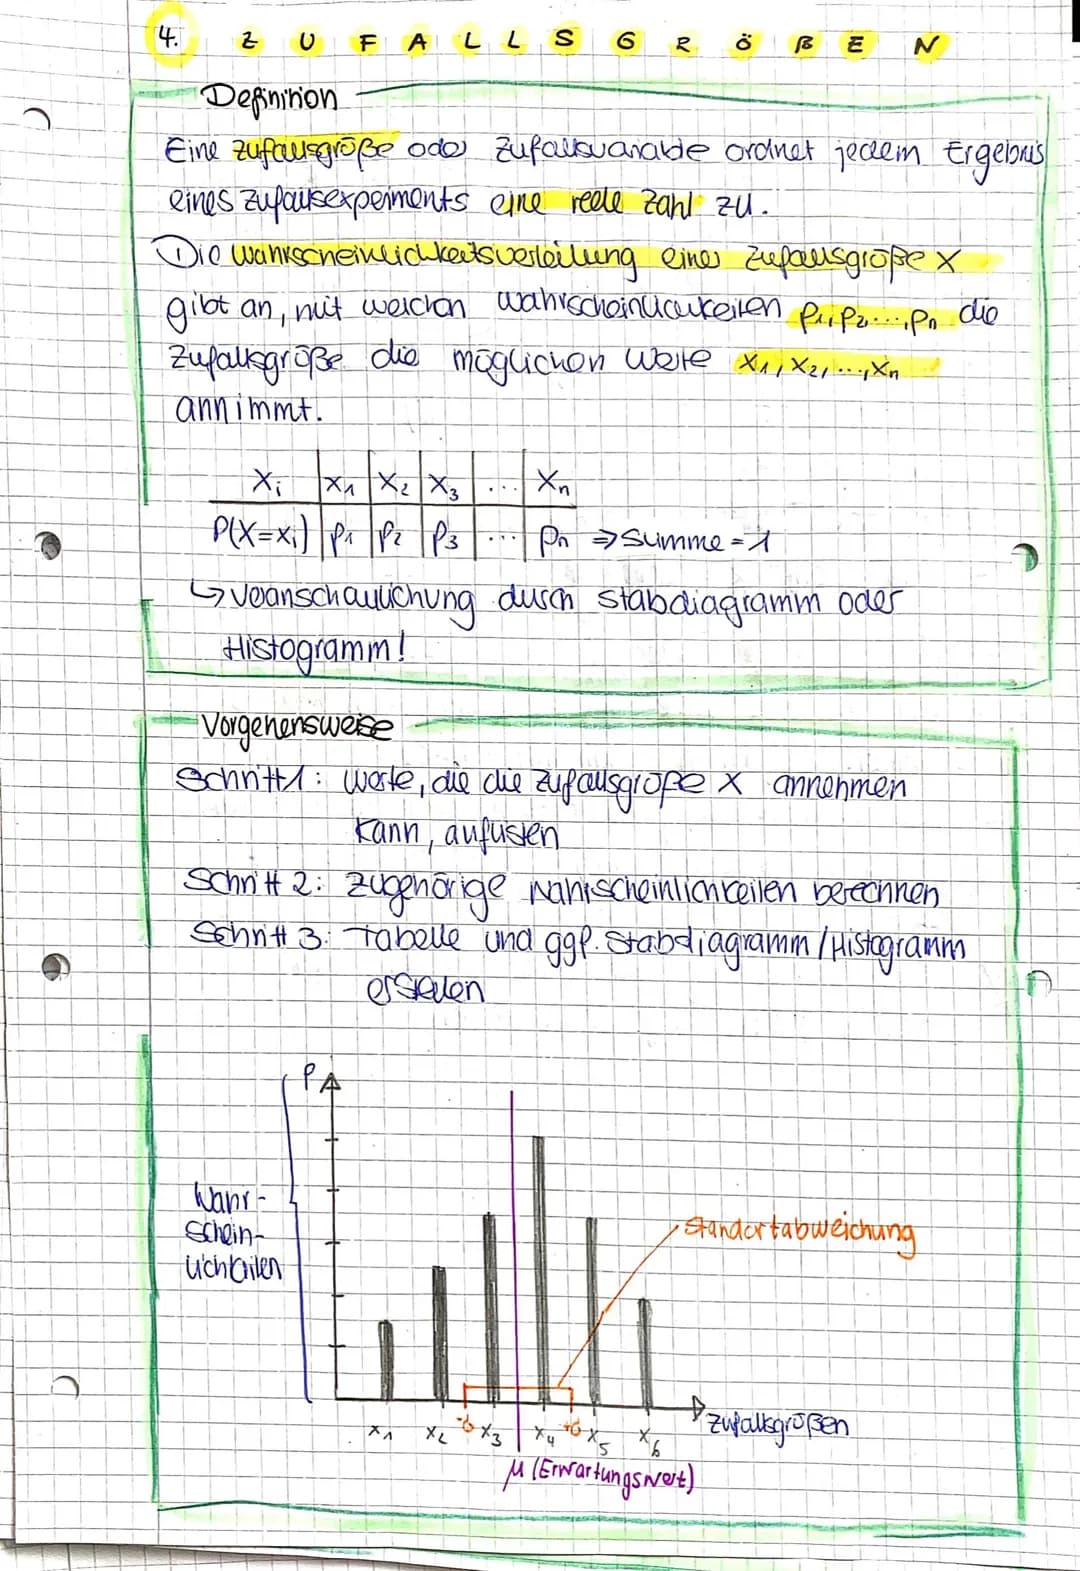 4. ZUFALLSGRÖßEN
Definition
Eine Zufallsgröße oder Zufallsvariable ordnet jedem Ergebnis
eines Zufallsexperiments eine reele Zahl zu.
Die Wahrscheinlichkeitsverteilung einer Zufallsgröße X
gibt an, mit welchen Wahrscheinlichkeiten p₁, p₂, ..., pₙ die
Zufallsgröße die möglichen Werte x₁, x₂, ..., xₙ
annimmt.
Xᵢ | x₁ | x₂ | x₃ | ... | xₙ
P(X=xᵢ) | p₁ | p₂ | p₃ | ... | pₙ ⇒ Summe = 1
↳ Veranschaulichung durch Stabdiagramm oder
Histogramm!
Vorgehensweise
Schritt 1: Werte, die die Zufallsgröße X annehmen
kann, auflisten
Schritt 2: Zugehörige Wahrscheinlichkeiten berechnen
Schritt 3: Tabelle und ggf. Stabdiagramm/Histogramm
erstellen
P
Wahr-
schein-
lichkeiten
Standartabweichung
x₁ x₂ -σ x₃ x₄ +σ x₅ x₆
Zufallsgrößen
μ (Erwartungswert)